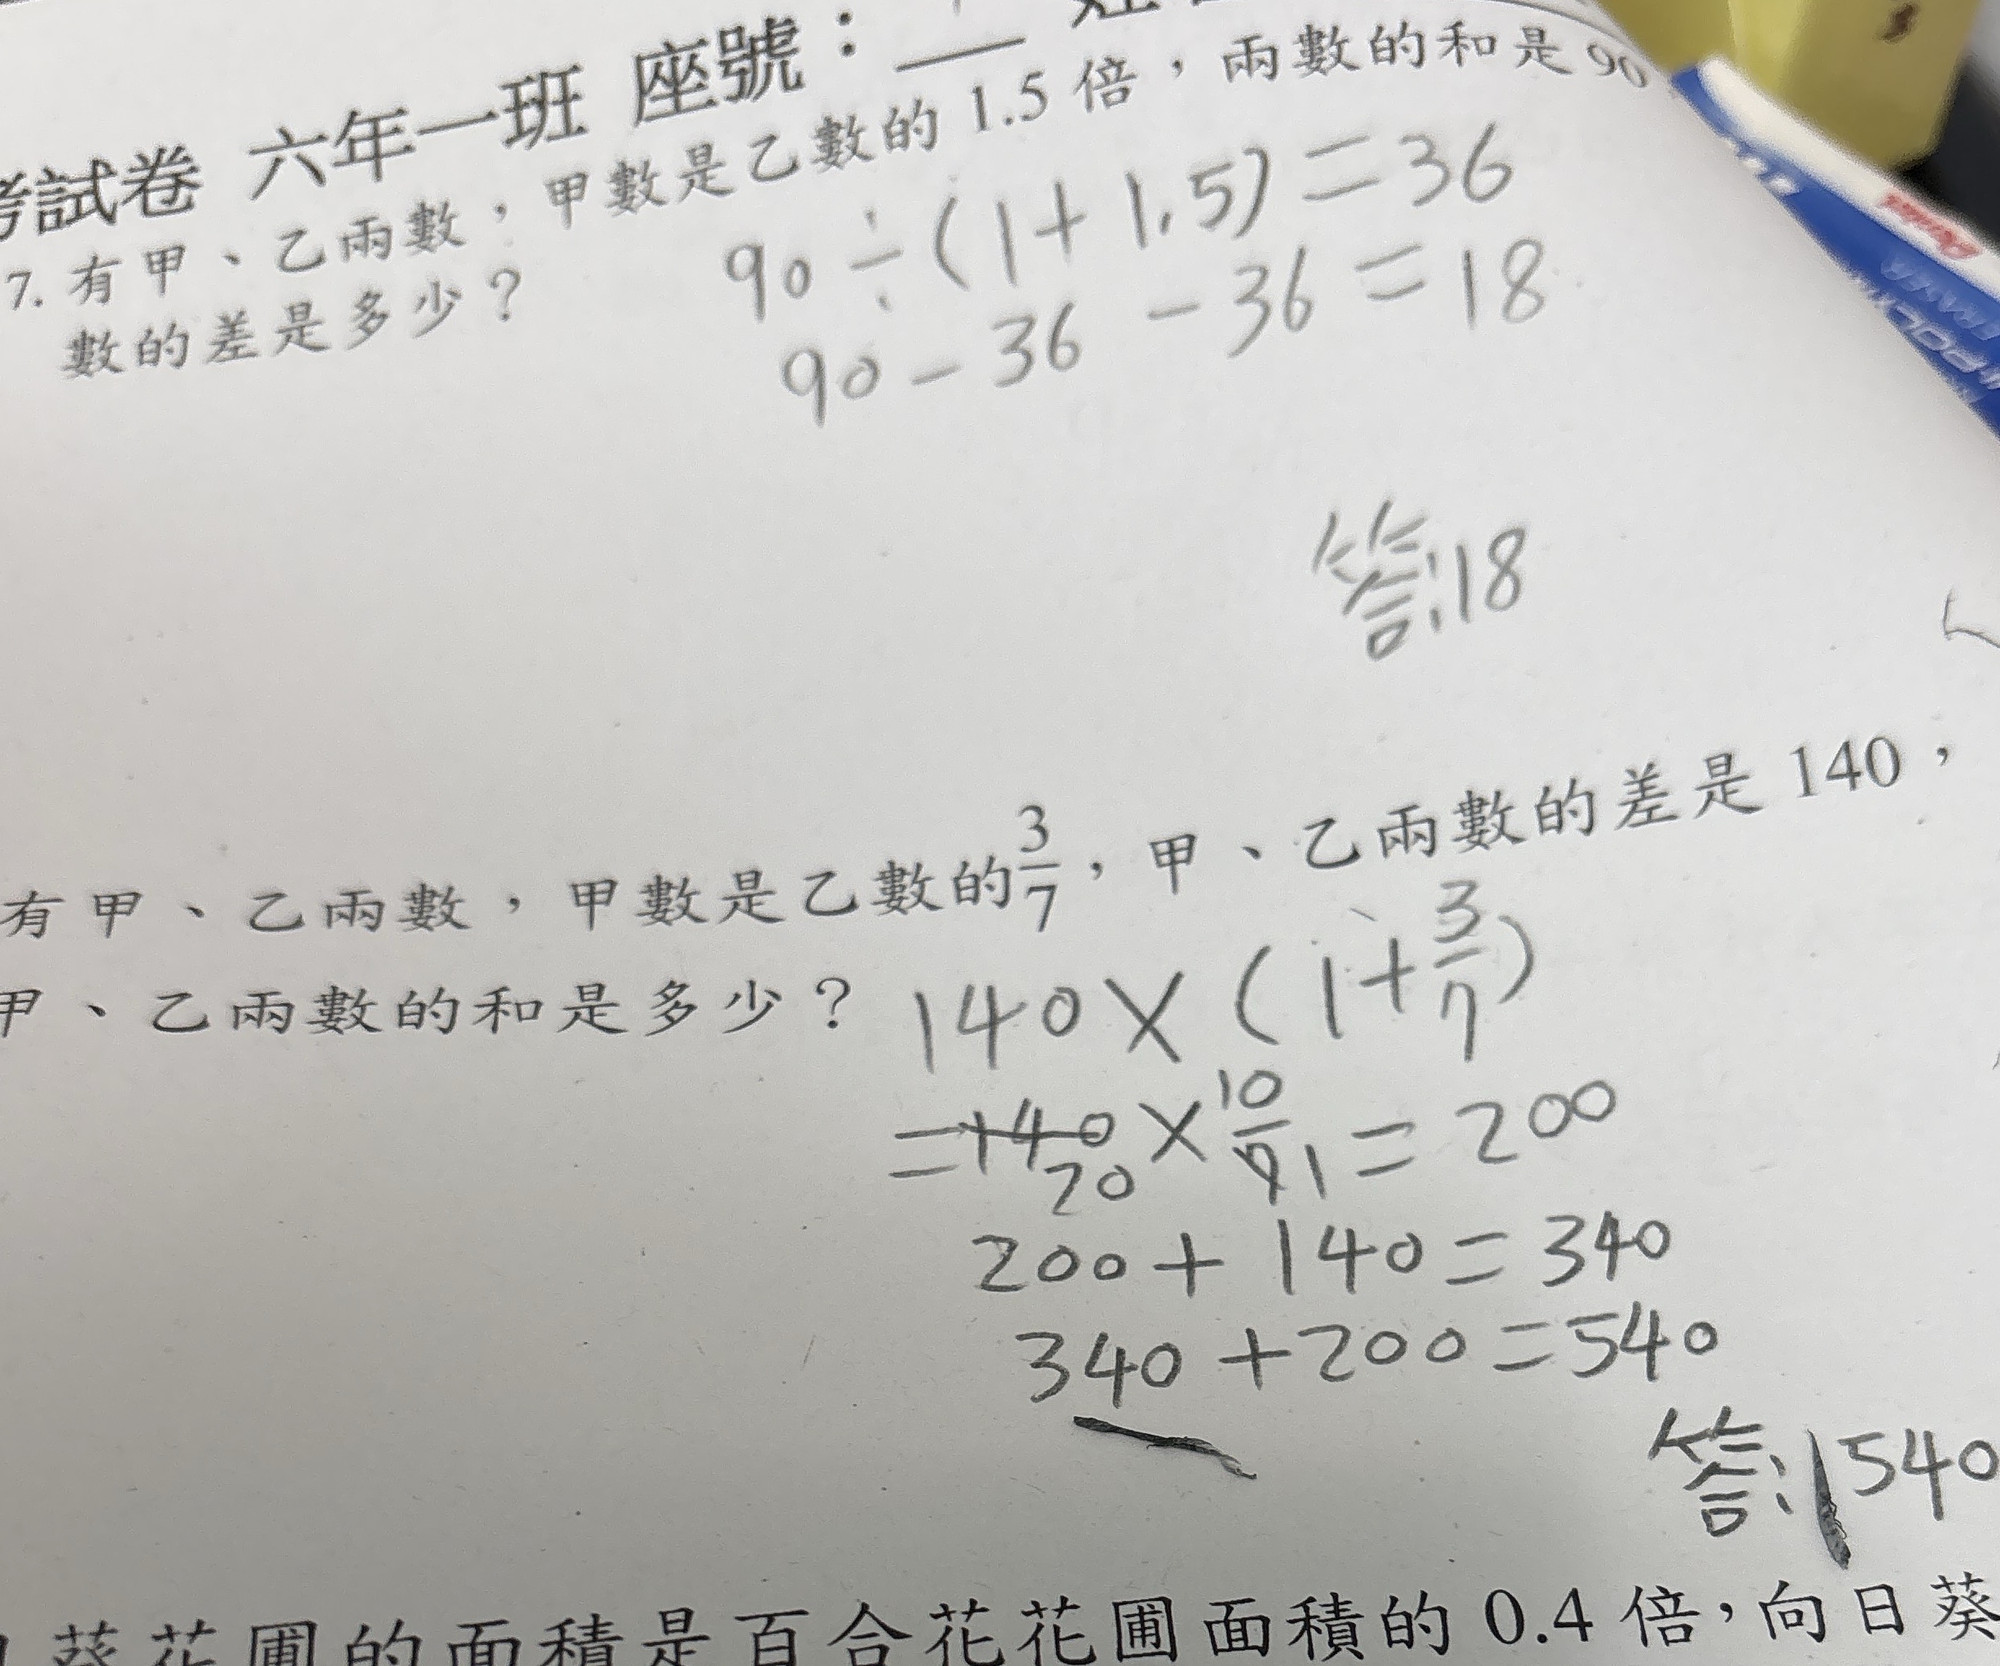 考試卷 六年一班 座號：
7. 有甲、乙兩數，甲數是乙數的 1.5 倍，兩數的和是 90
數的差是多少？
90÷(1+1.5)=36
90-36-36=18
答:18
有甲、乙兩數，甲數是乙數的3/7，甲、乙兩數的差是 140，
甲、乙兩數的和是多少？
140×(1+3/7)
=140 20×10/7 1=200
200+140=340
340+200=540
答:540
葵花圃的面積是百合花花圃面積的 0.4 倍，向日葵
Pentel